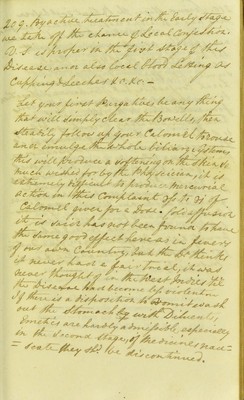 209. By active treatment in the Early Stage
we take off the chance of Local Congestion.
V.S. is proper in the first stage of this
Disease and also local Blood Letting as
Cupping & Leeches &c. &c.
Let your first Purga be any thing
that will simply clear the Bowells, then
steadily follow up your Calomel Purge
and emulge the whole biliary System,
this will produce a softening on the Skin so
much wished for by the Physician, it is
extremely difficult to produce mercurial
action in this Complaint ʒfs to ʒi of
Calomel given for a Dose. Cold affusion
it is said has not been found to have
the same good effect here as in fevers
of our own Country, but the Dr thinks
it never have a fair trial, it was
never thought of in the West Indies till
the Disease had become
If there is a disposition to Vomit wash
out the Stomach by with Diluents,
Emetics are hardly admissible, especially
in the Second Stage, if Medicines nau=
=seate they shd be discontinued.